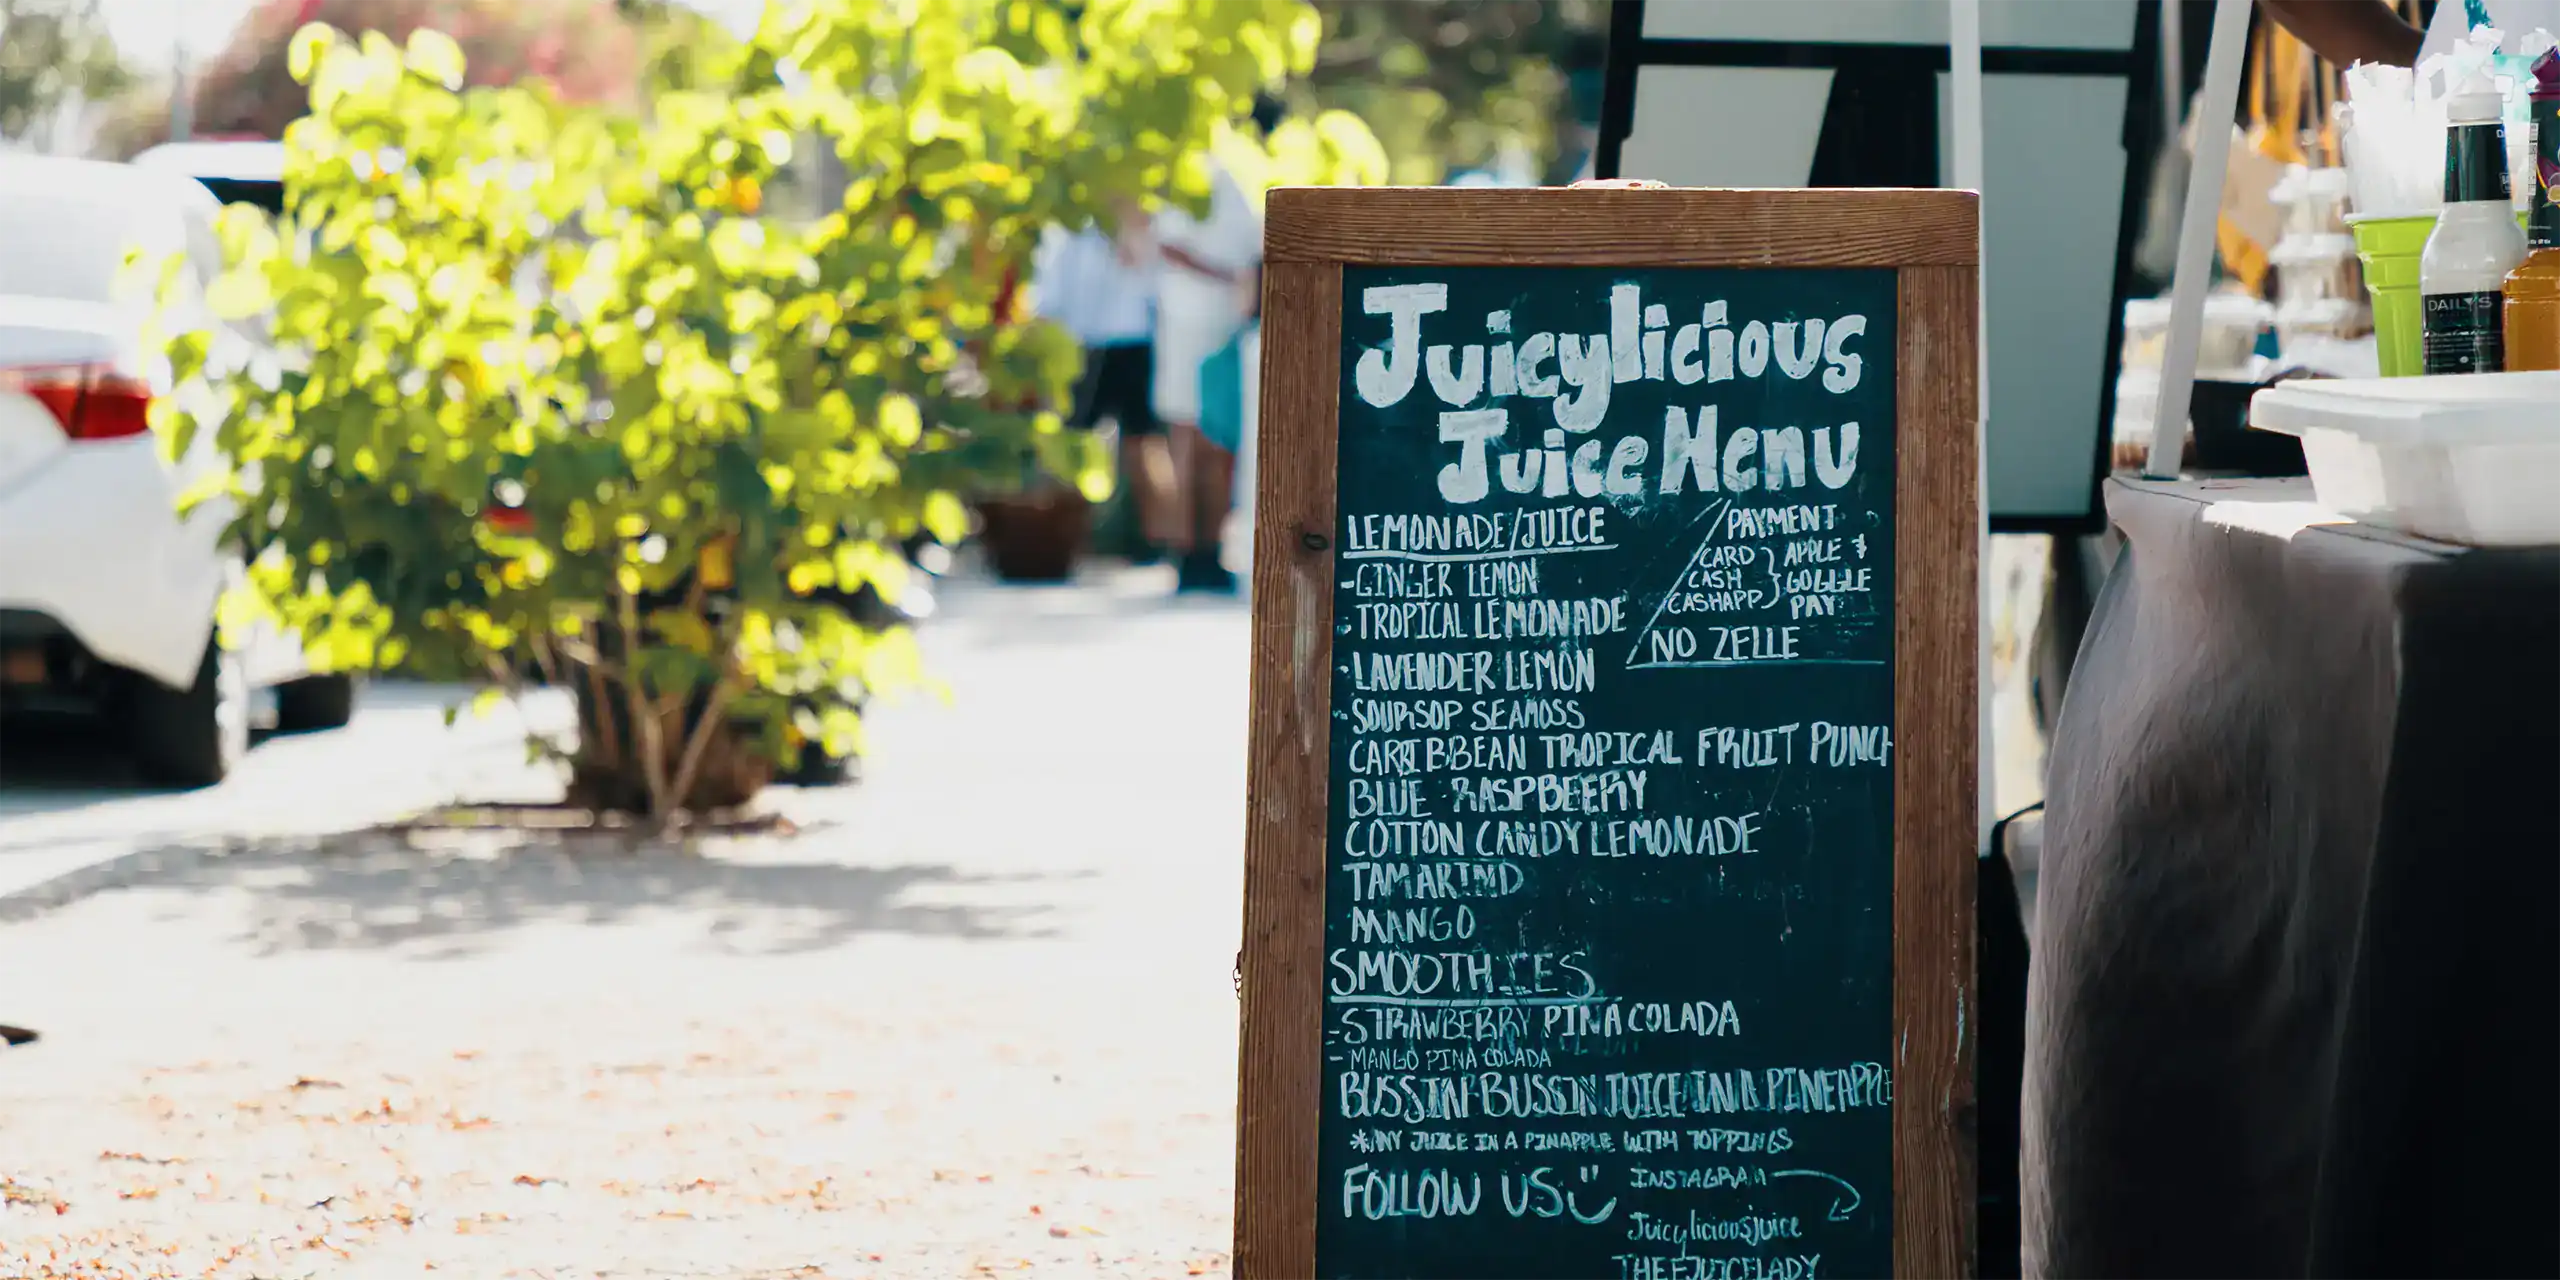 Juicylicious
Juice Menu
LEMONADE/JUICE
-GINGER LEMON
-TROPICAL LEMONADE
-LAVENDER LEMON
-SOURSOP SEAMOSS
CARRIBBEAN TROPICAL FRUIT PUNCH
BLUE RASPBERRY
COTTON CANDY LEMONADE
TAMARIND
MANGO
PAYMENT
CARD } APPLE &
CASH } GOGGLE
CASHAPP } PAY
NO ZELLE
SMOOTHIES
-STRAWBERRY PINA COLADA
-MANGO PINA COLADA
BUSSIN BUSSIN JUICE IN A PINEAPPLE
*ANY JUICE IN A PINEAPPLE WITH TOPPINGS
FOLLOW US
INSTAGRAM
Juicyliciousjuice
THEEJUICELADY
DAILY'S